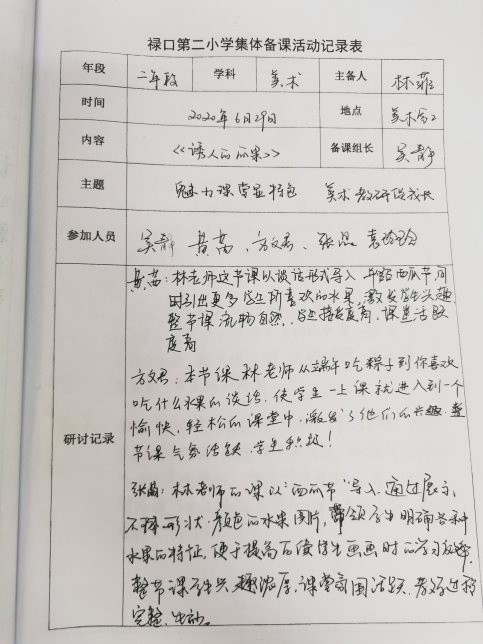 禄口第二小学集体备课活动记录表
年段 二年段 学科 美术 主备人 林菲
时间 2020年6月29日 地点 美术室2
内容 《诱人的瓜果》 备课组长 吴静
主题 魅力课堂显特色 美术教研促成长
参加人员 吴静 黄茜、方文君、张晶 袁玲玲
黄茜:林老师这节课以谈话形式导入 西瓜节,同
时引出更多学生所喜欢的水果,激发学生兴趣
整节课流畅自然,学生持续度高,课堂活跃
度高
方文君:本节课林老师从端午吃粽子到你喜欢
吃什么水果的谈话,使学生一上课就进入到一个
愉快、轻松的课堂中,激发了他们的兴趣,整
研讨记录
节课气氛活跃,学生积极!
张晶:林老师的课以“西瓜节”导入,通过展示
不同形状、颜色的水果图片,带领学生明确各种
水果的特征,便于提高后续学生画画时的学习
整节课学生兴趣浓厚,课堂氛围活跃,教学过程
完整、生动。